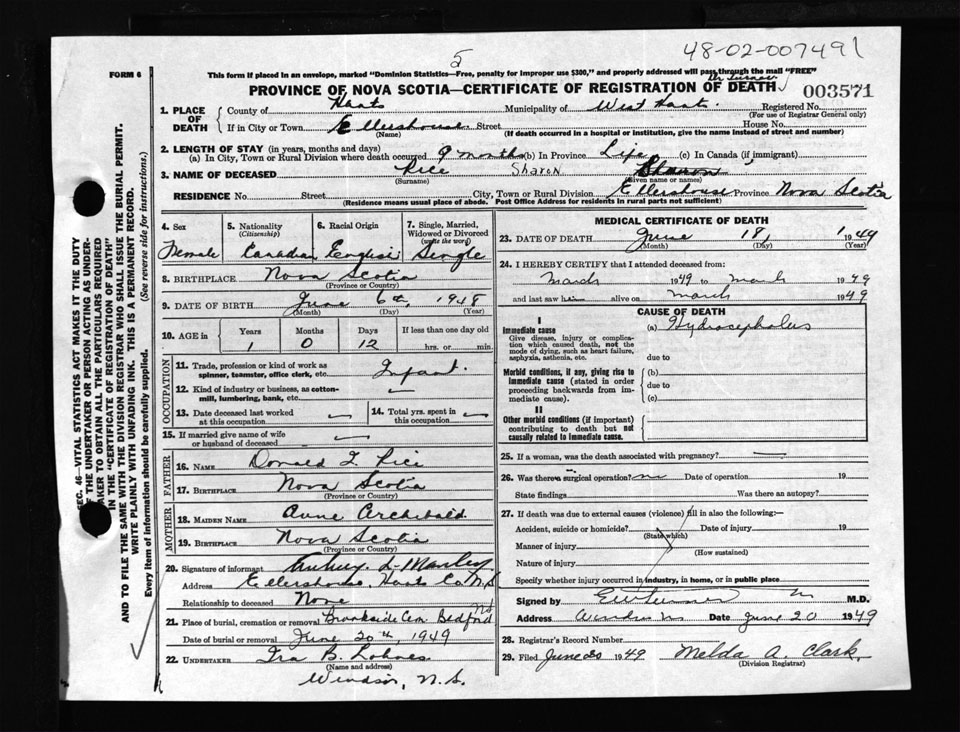 48-02-007491
5
FORM 6
This form if placed in an envelope, marked "Dominion Statistics—Free, penalty for improper use $300," and properly addressed will pass through the mail "FREE"
PROVINCE OF NOVA SCOTIA—CERTIFICATE OF REGISTRATION OF DEATH
003571
1. PLACE OF DEATH
County of Hants Municipality of West Hants. Registered No.
(For use of Registrar General only)
If in City or Town Ellershouse Street House No.
(Name) (If death occurred in a hospital or institution, give the name instead of street and number)
2. LENGTH OF STAY (in years, months and days)
(a) In City, Town or Rural Division where death occurred 9 months (b) In Province Life (c) In Canada (if immigrant)
3. NAME OF DECEASED Rice Sharon Sharon
(Surname) (Given name or names)
RESIDENCE No. Street City, Town or Rural Division Ellershouse Province Nova Scotia
(Residence means usual place of abode. Post Office Address for residents in rural parts not sufficient)
4. Sex 5. Nationality (Citizenship) 6. Racial Origin 7. Single, Married, Widowed or Divorced (write the word)
Female Canadian English Single
8. BIRTHPLACE Nova Scotia
(Province or Country)
9. DATE OF BIRTH June 6th, 1948
(Month) (Day) (Year)
10. AGE in Years Months Days If less than one day old
1 0 12 hrs. or min.
OCCUPATION
11. Trade, profession or kind of work as spinner, teamster, office clerk, etc. Infant.
12. Kind of industry or business, as cotton-mill, lumbering, bank, etc. —
13. Date deceased last worked at this occupation — 14. Total yrs. spent in this occupation —
15. If married give name of wife or husband of deceased —
FATHER
16. NAME Donald Rice
17. BIRTHPLACE Nova Scotia
(Province or Country)
MOTHER
18. MAIDEN NAME Anne Archibald
19. BIRTHPLACE Nova Scotia
(Province or Country)
20. Signature of informant
Address Ellershouse, Hants Co. N.S
Relationship to deceased None
21. Place of burial, cremation or removal Brookside Cem. Bedford NS
Date of burial or removal June 20th, 1949
22. UNDERTAKER Ira B. Lohnes
(Name and address)
Windsor, N.S.
MEDICAL CERTIFICATE OF DEATH
23. DATE OF DEATH June 18, 1949
(Month) (Day) (Year)
24. I HEREBY CERTIFY that I attended deceased from:
March 1949 to March 1949
and last saw her alive on March 1949
CAUSE OF DEATH
I
Immediate cause
Give disease, injury or complication which caused death, not the mode of dying, such as heart failure, asphyxia, asthenia, etc.
(a) Hydrocephalus
due to
Morbid conditions, if any, giving rise to immediate cause (stated in order proceeding backwards from immediate cause).
(b)
due to
(c)
II
Other morbid conditions (if important) contributing to death but not causally related to immediate cause.
25. If a woman, was the death associated with pregnancy? —
26. Was there a surgical operation? no Date of operation 19
State findings Was there an autopsy?
27. If death was due to external causes (violence) fill in also the following:—
Accident, suicide or homicide? Date of injury 19
(State which)
Manner of injury
(How sustained)
Nature of injury
Specify whether injury occurred in industry, in home, or in public place
Signed by M.D.
Address Windsor Date June 20 1949
28. Registrar's Record Number
29. Filed June 20 1949 Melda A. Clark.
(Division Registrar)
SEC. 46—VITAL STATISTICS ACT MAKES IT THE DUTY
OF THE UNDERTAKER OR PERSON ACTING AS UNDER-
TAKER TO OBTAIN ALL THE PARTICULARS REQUIRED
IN THE "CERTIFICATE OF REGISTRATION OF DEATH"
AND TO FILE THE SAME WITH THE DIVISION REGISTRAR WHO SHALL ISSUE THE BURIAL PERMIT.
WRITE PLAINLY WITH UNFADING INK. THIS IS A PERMANENT RECORD.
Every item of information should be carefully supplied. (See reverse side for instructions.)